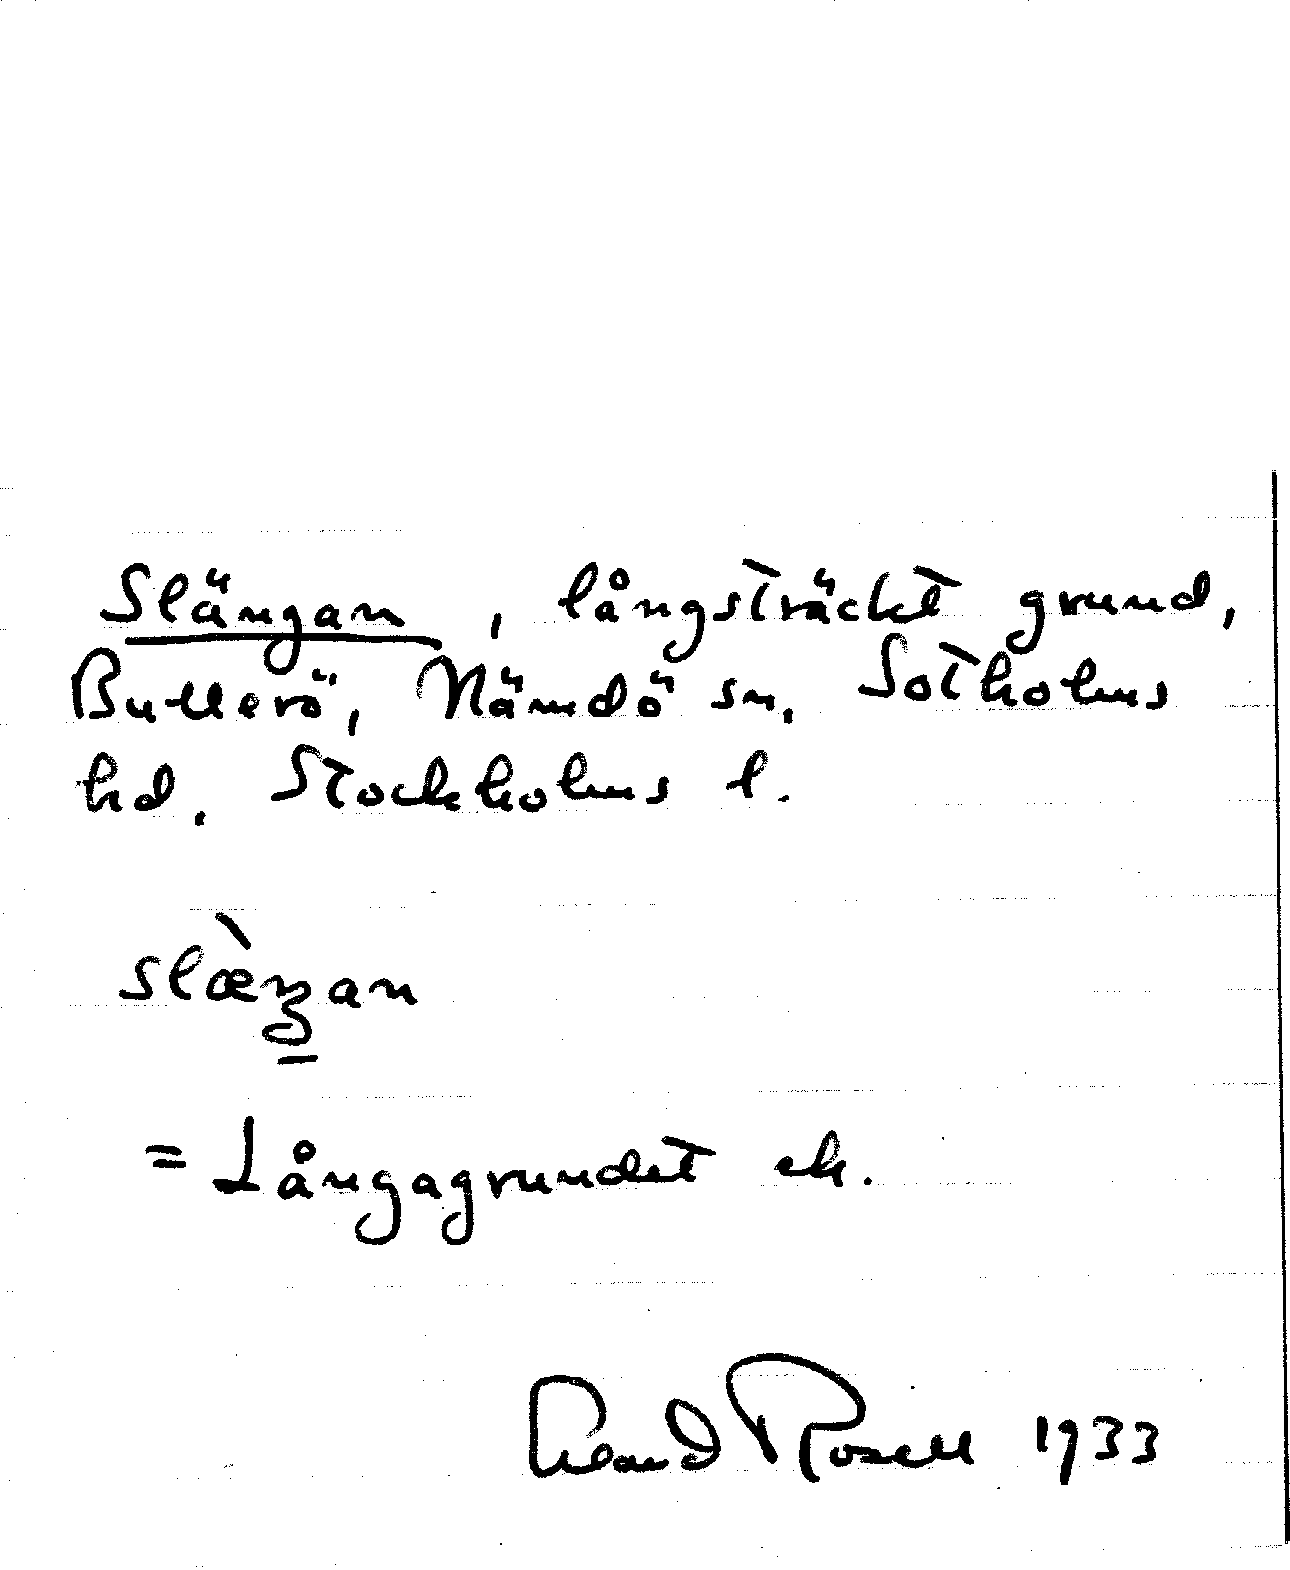 Slängan, långsträckt grund,
Bullerö, Nämdö sn, Sotholms
hd. Stockholms l.
slæ̀ŋan
= Långagrundet ek.
Rosell 1933